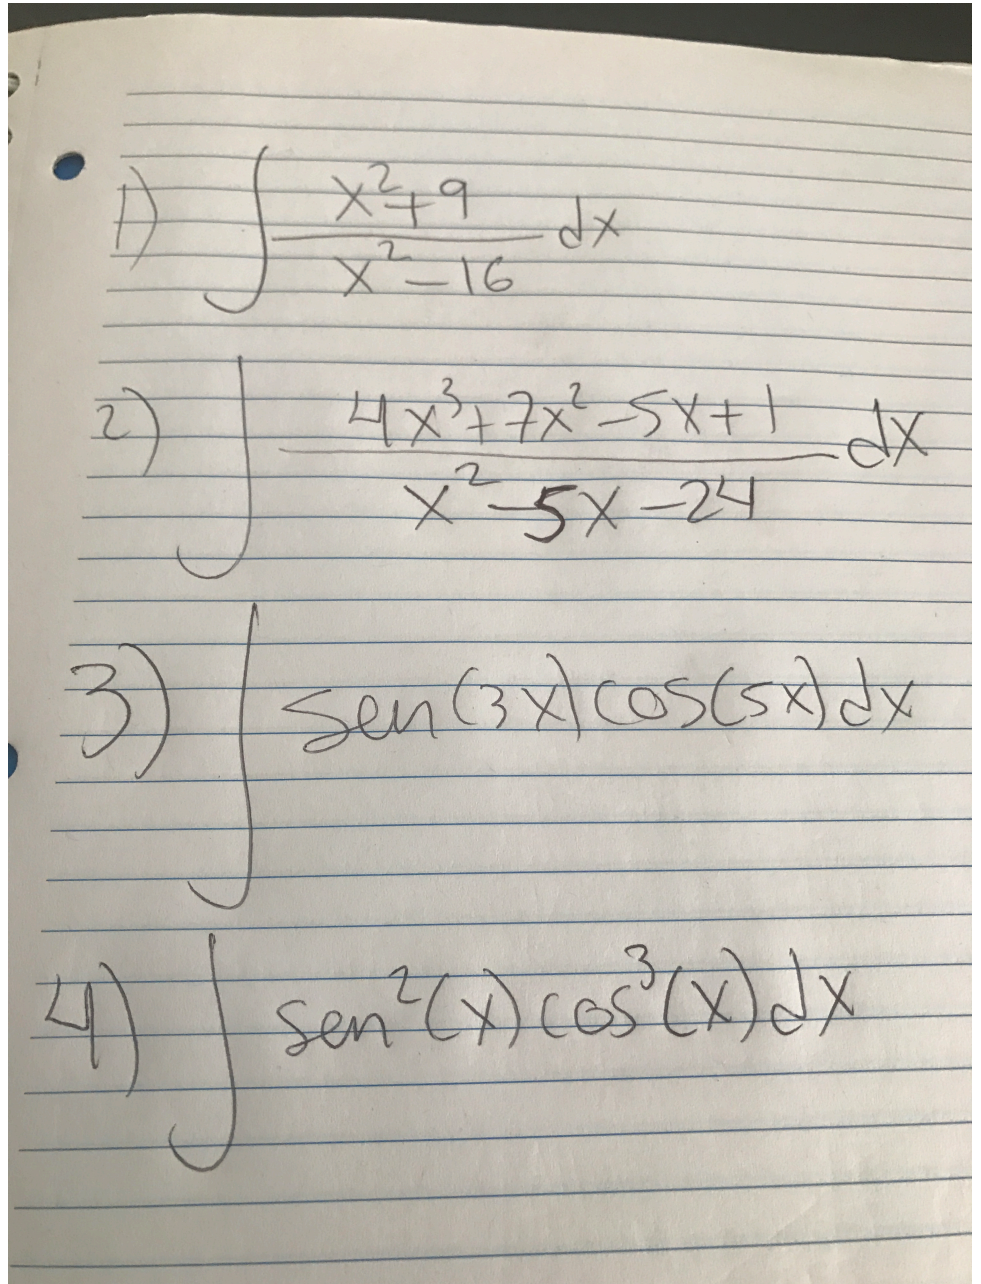 1) ∫ (x²+9)/(x²-16) dx
2) ∫ (4x³+7x²-5x+1)/(x²-5x-24) dx
3) ∫ sen(3x)cos(5x)dx
4) ∫ sen²(x)cos³(x)dx